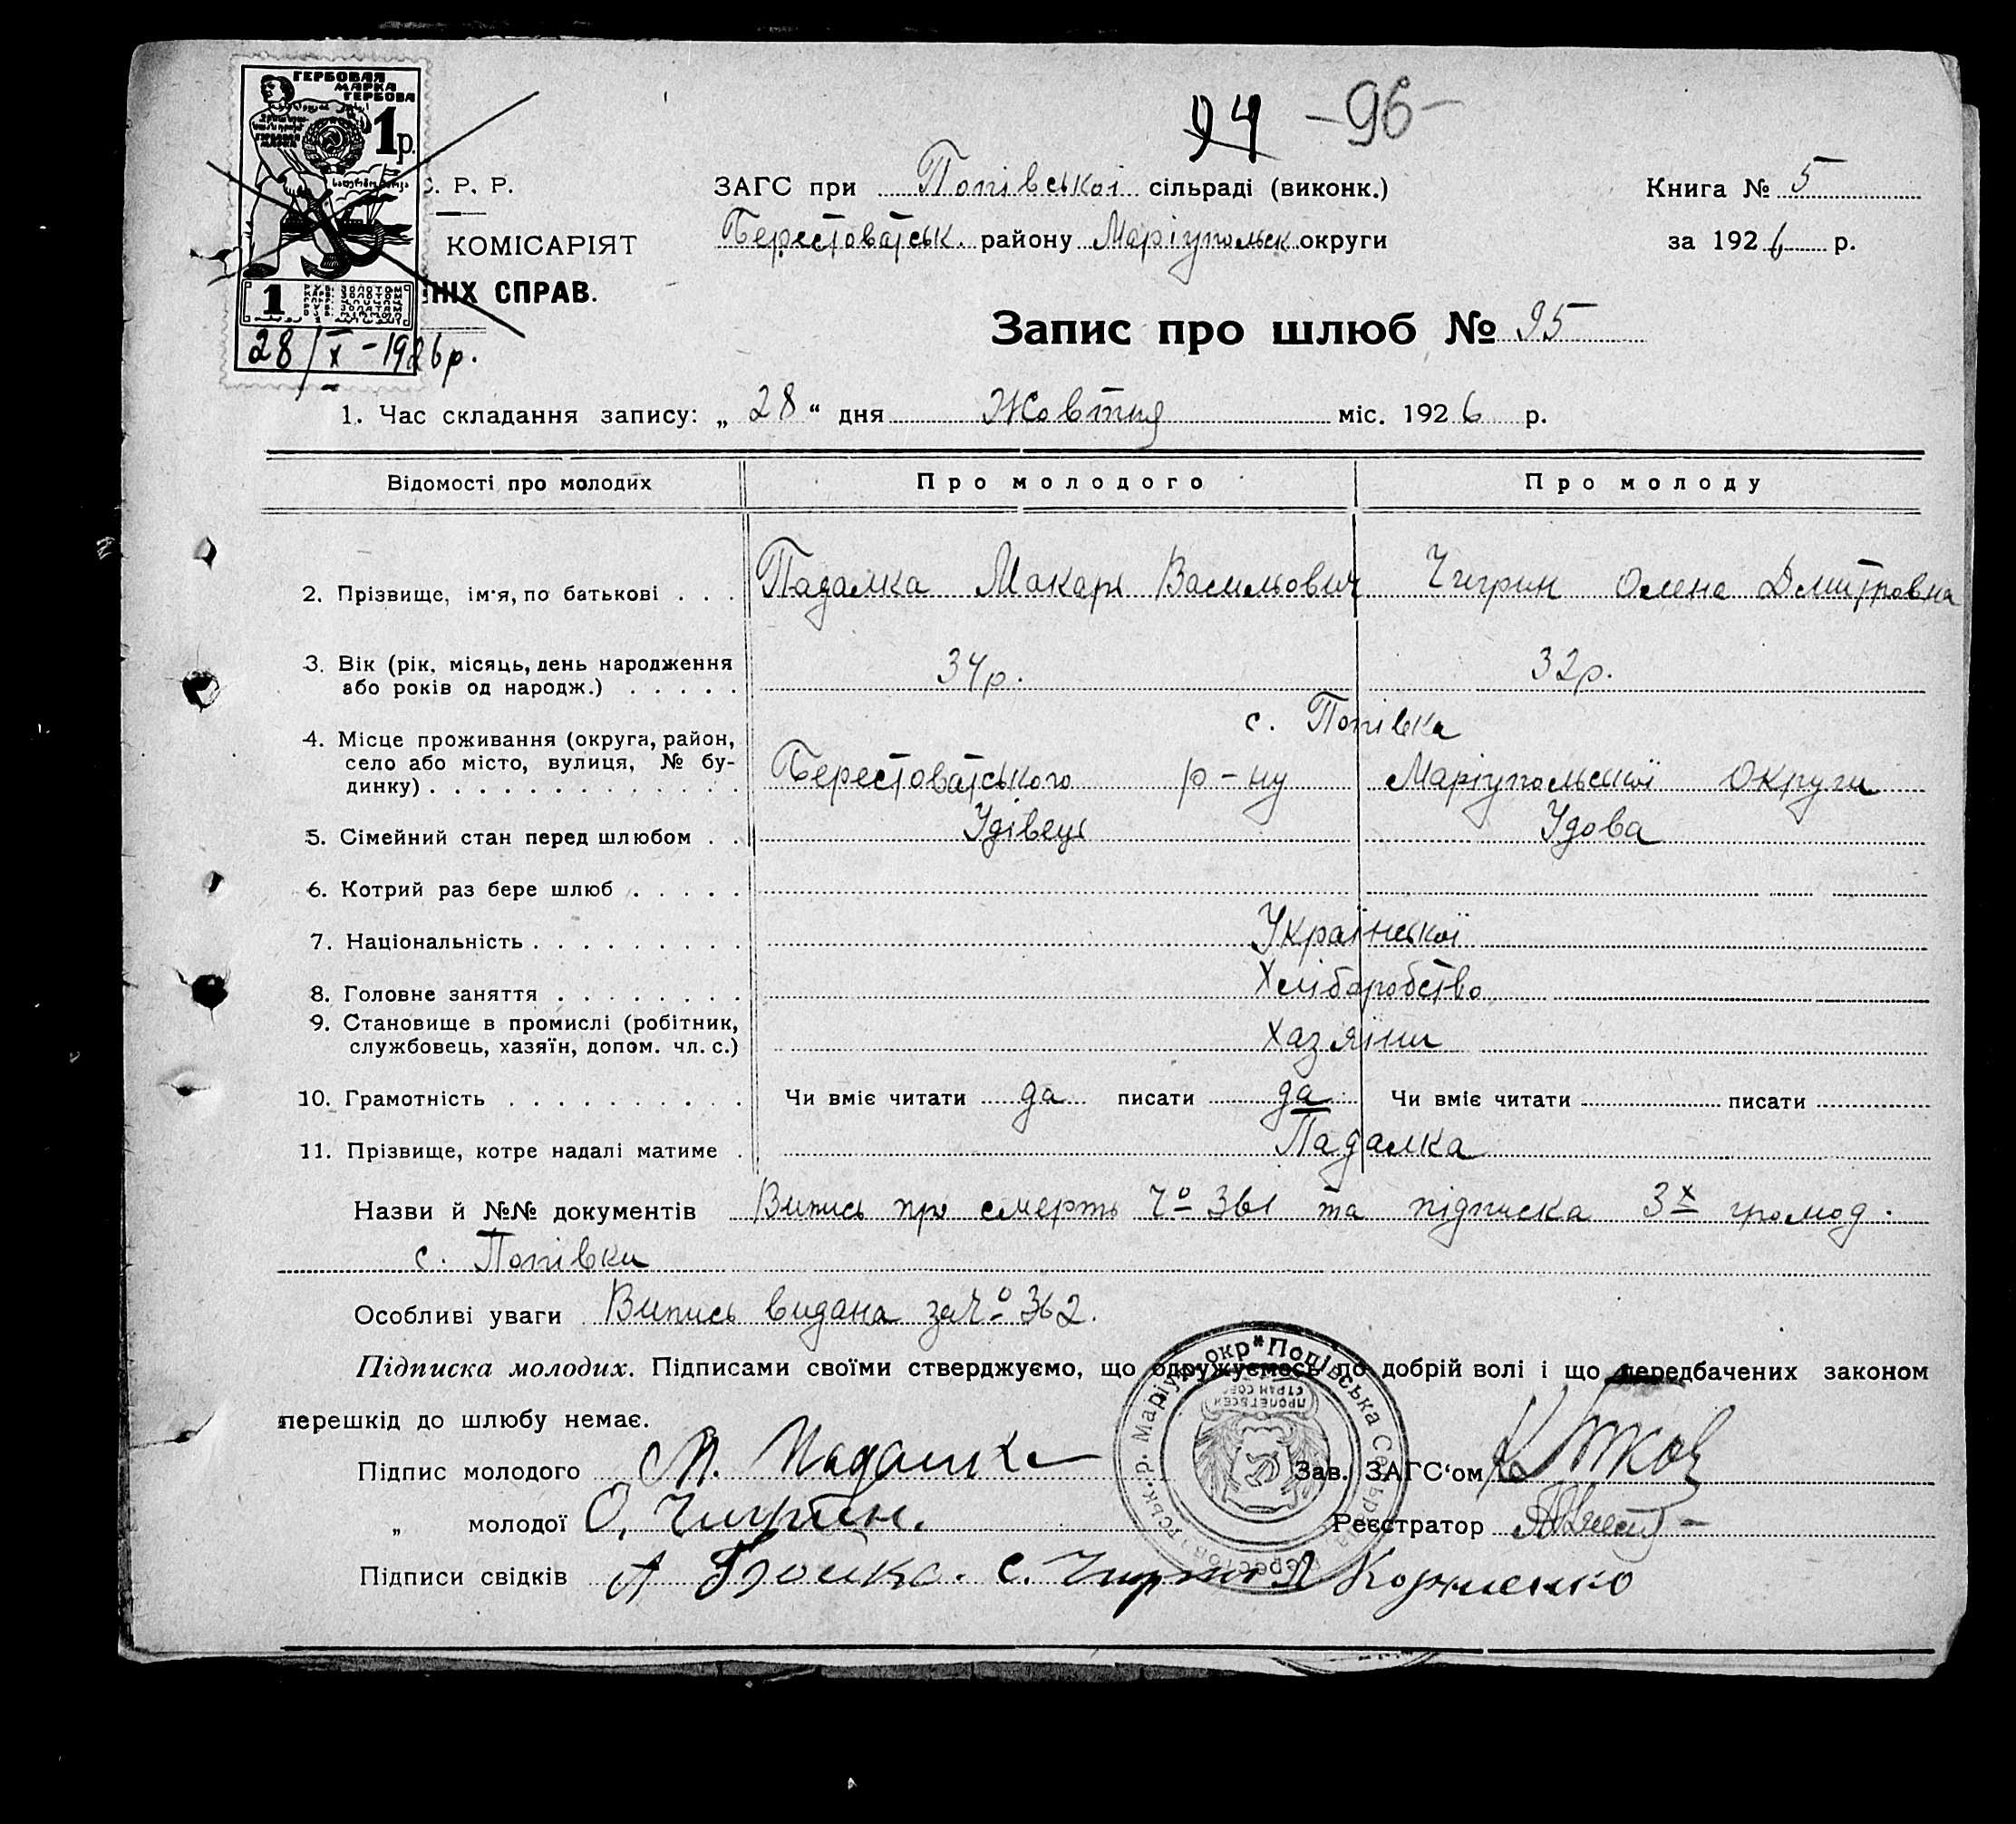 ГЕРБОВАЯ
МАРКА
ГЕРБОВА
1р.
1
28/X-1926р.
94 -96-
С. Р. Р.
КОМІСАРІЯТ
НІХ СПРАВ.
ЗАГС при Попівськоі сільраді (виконк.)
Берестоватськ. району Маріупольськ округи
Книга № 5
за 1926 р.
Запис про шлюб № 95
1. Час складання запису: „28“ дня Жовтня міс. 1926 р.
Відомості про молодих Про молодого Про молоду
2. Прізвище, ім'я, по батькові . . . Падалка Макарь Васильович Чигрин Олена Дмитровна
3. Вік (рік, місяць, день народження
або років од народж.) . . . . . 34р. 32р.
с. Попівка
4. Місце проживання (округа, район,
село або місто, вулиця, № бу-
динку) . . . . . . . . . . . . . Берестоватського р-ну Маріупольськоі Округи
5. Сімейний стан перед шлюбом . . Удівець Удова
6. Котрий раз бере шлюб . . . . .
7. Національність . . . . . . . . . Українськоі
8. Головне заняття . . . . . . . . Хліборобство
9. Становище в промислі (робітник,
службовець, хазяїн, допом. чл. с.) Хазяїни
10. Грамотність . . . . . . . . . . Чи вміє читати да писати да Чи вміє читати писати
11. Прізвище, котре надалі матиме . Падалка
Назви й №№ документів Випись про смерть Чо 361 та підписка 3х громад.
с. Попівки
Особливі уваги Випись видана за Чо 362.
Підписка молодих. Підписами своїми стверджуємо, що одружуємось по добрій волі і що передбачених законом
перешкід до шлюбу немає.
Підпис молодого М. Падалка Зав. ЗАГС'ом
„ молодої О. Чигрин. Реєстратор
Підписи свідків А Бойко. С. Чигрин Л Корниенко
Маріуп. окр * Попівська Сільрада